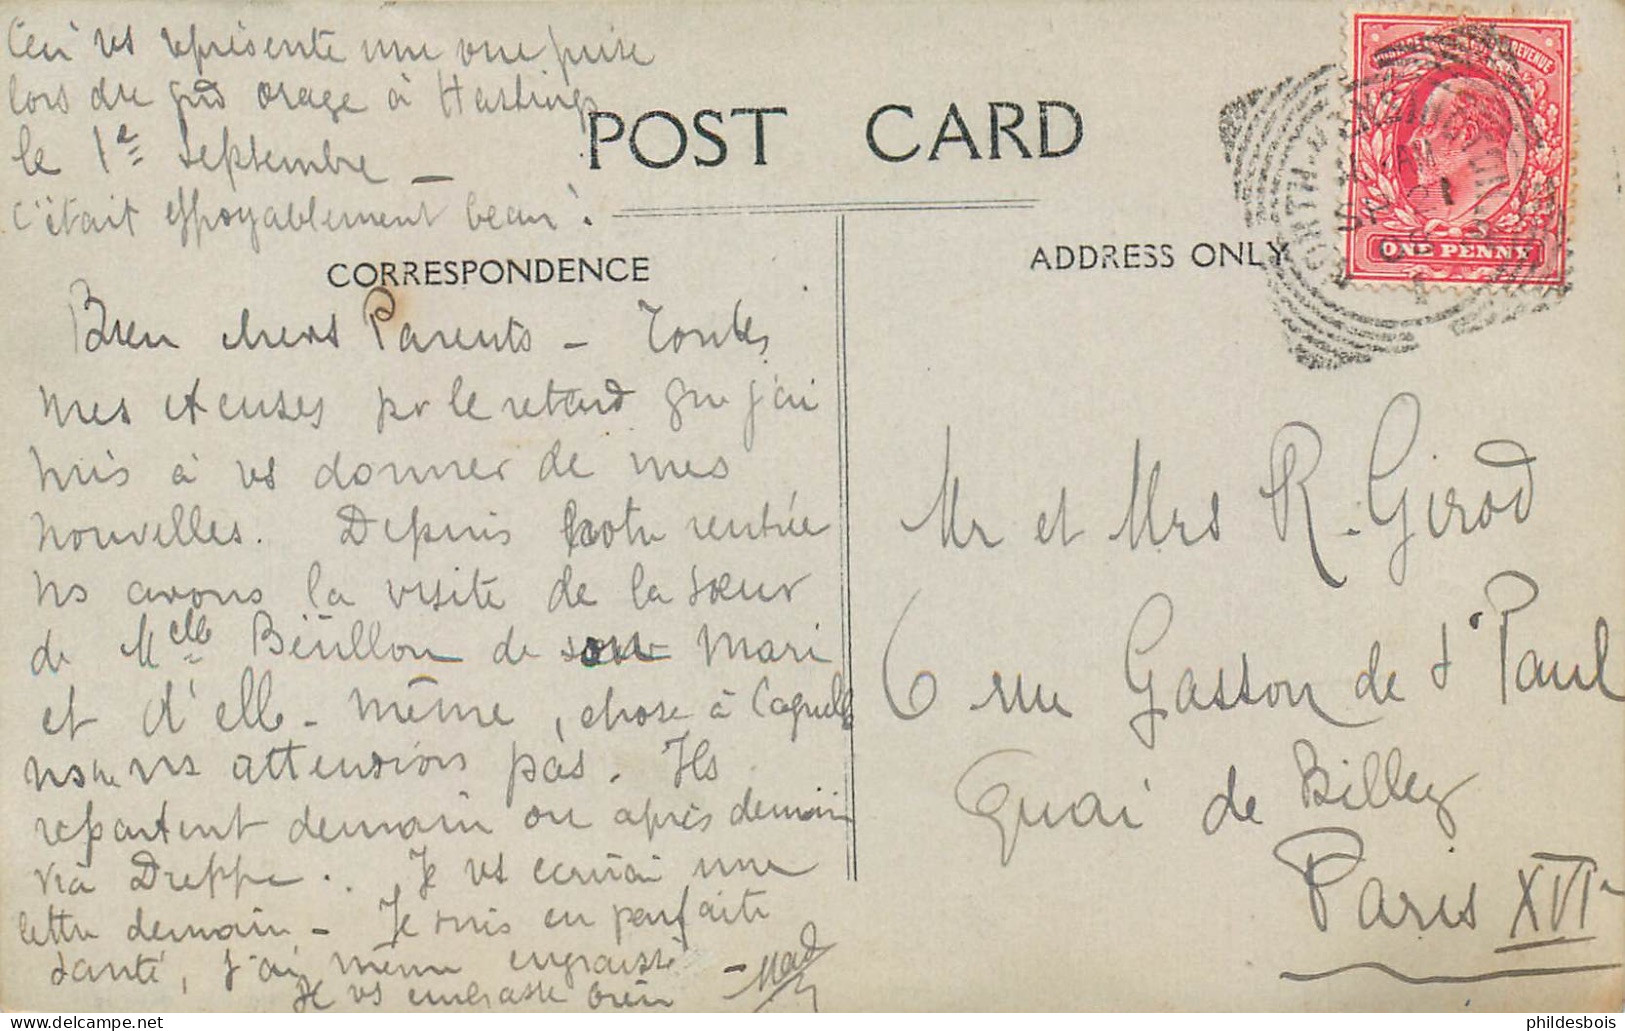 Ceci vs représente une vue prise
lors du gnd orage à Hastings
le 1er Septembre _
C'était effroyablement beau!
POST CARD
CORRESPONDENCE
ADDRESS ONLY
REVENUE
ONE PENNY
Bien chers Parents - Toutes
mes excuses pr le retard que j'ai
mis à vs donner de mes
nouvelles. Depuis notre rentrée
ns avons la visite de la sœur
de Melle de son mari
et d'elle-même, chose à laquelle
ns ns attendions pas. Ils
repartent demain ou après demain
via Dieppe. Je vs écrirai une
lettre demain - Je suis en parfaite
santé, j'ai même engraissé
Je vs embrasse bien - Mad
Mr et Mrs R. Girod
6 rue Gasson de St Paul
Quai de Billy
Paris XVIe
phildesbois